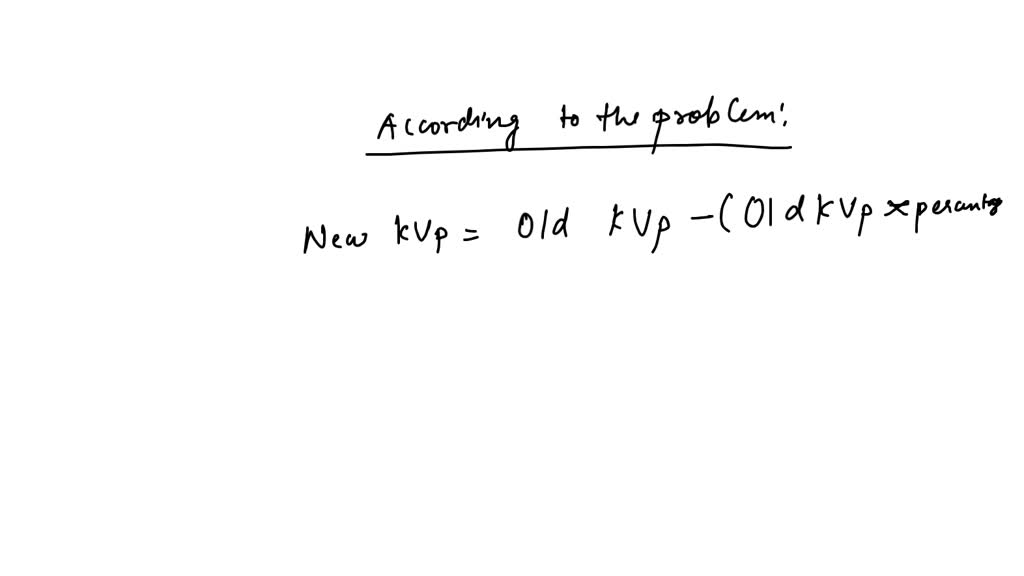 According to the problem:
New kVp = Old kVp – ( Old kVp ×